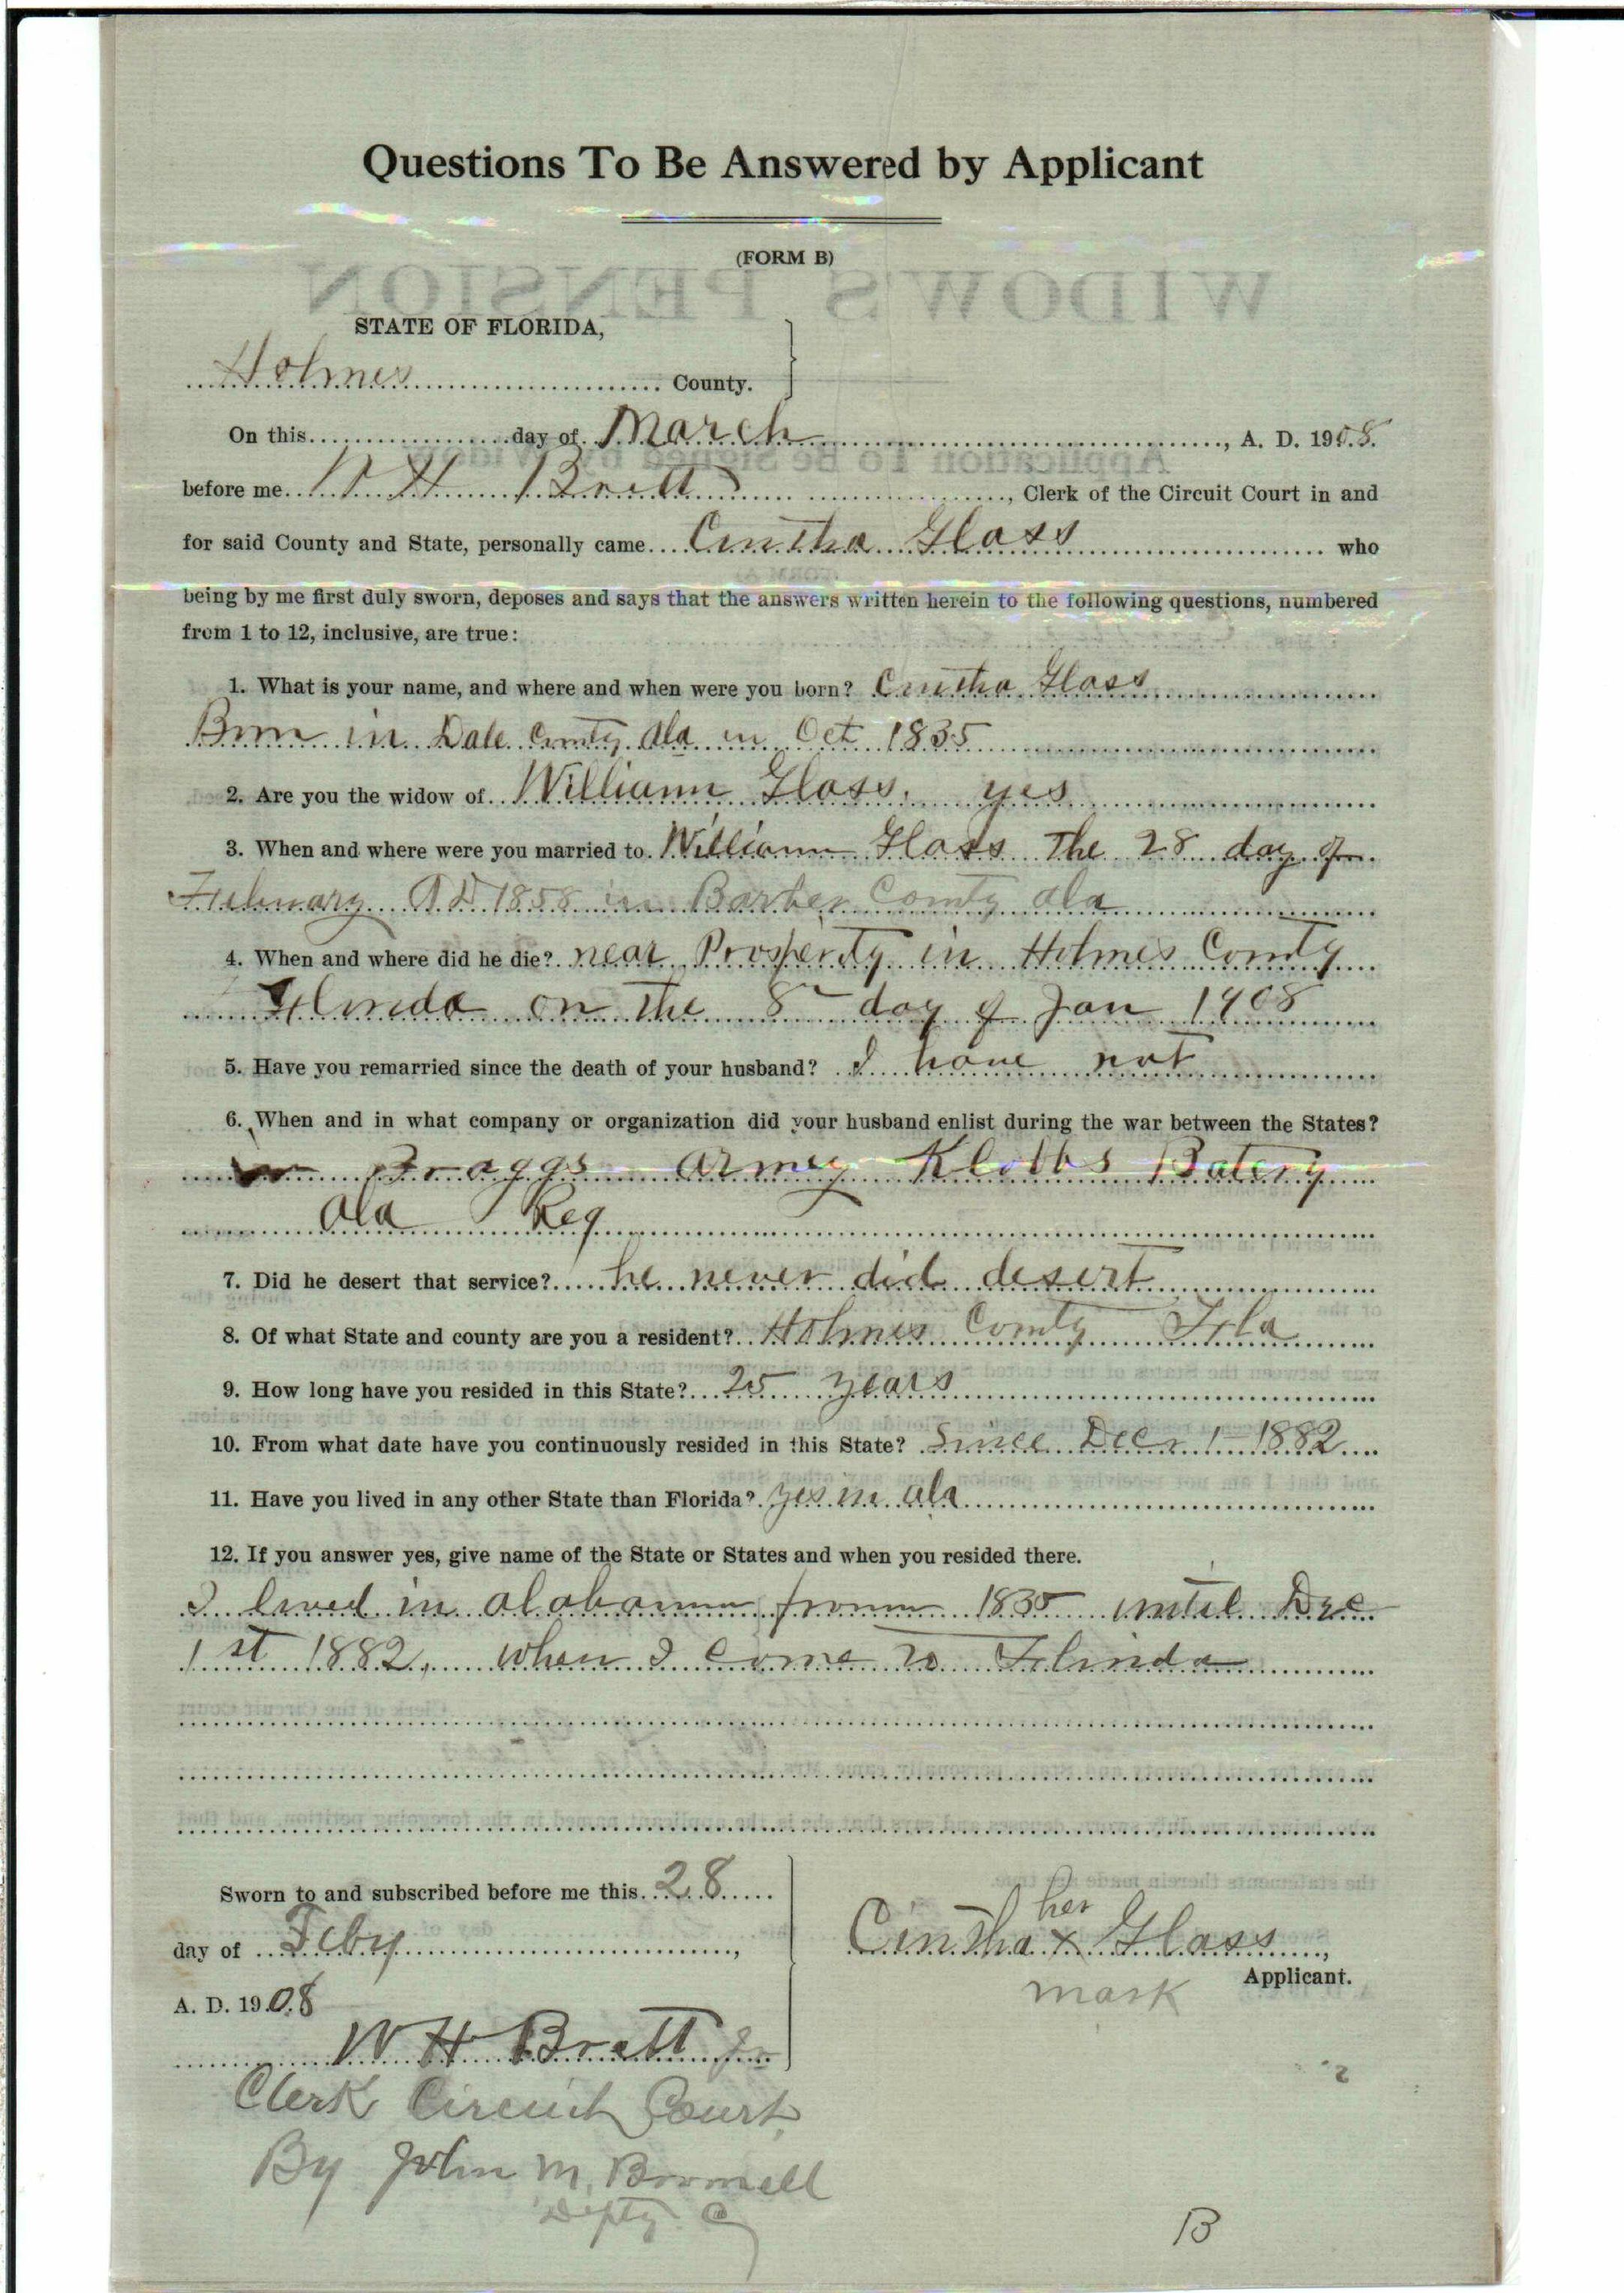 Questions To Be Answered by Applicant
(FORM B)
WIDOW'S PENSION
STATE OF FLORIDA,
Holmes County.
On this day of March, A. D. 1908.
before me W H Brett, Clerk of the Circuit Court in and
for said County and State, personally came Cintha Glass who
being by me first duly sworn, deposes and says that the answers written herein to the following questions, numbered
from 1 to 12, inclusive, are true:
1. What is your name, and where and when were you born? Cintha Glass
Born in Dale County Ala in Oct 1835
2. Are you the widow of William Glass. yes
3. When and where were you married to William Glass The 28 day of
February AD 1858 in Barber County Ala
4. When and where did he die? near Prosperity in Holmes County
Florida on the 8 day of Jan 1908
5. Have you remarried since the death of your husband? I have not
6. When and in what company or organization did your husband enlist during the war between the States?
Braggs Armey Klobbs Batery
Ala Reg
7. Did he desert that service? he never did desert
8. Of what State and county are you a resident? Holmes County Fla
9. How long have you resided in this State? 25 years
10. From what date have you continuously resided in this State? Since Dec 1 1882
11. Have you lived in any other State than Florida? yes in ala
12. If you answer yes, give name of the State or States and when you resided there.
I lived in alabama from 1835 until Dec
1st 1882, when I come to Florida
Sworn to and subscribed before me this 28
day of Feby,
A. D. 1908
W H Brett Jr
Clerk Circuit Court
By John M. Bowmell
Depty C
her
Cintha x Glass,
mark
Applicant.
B